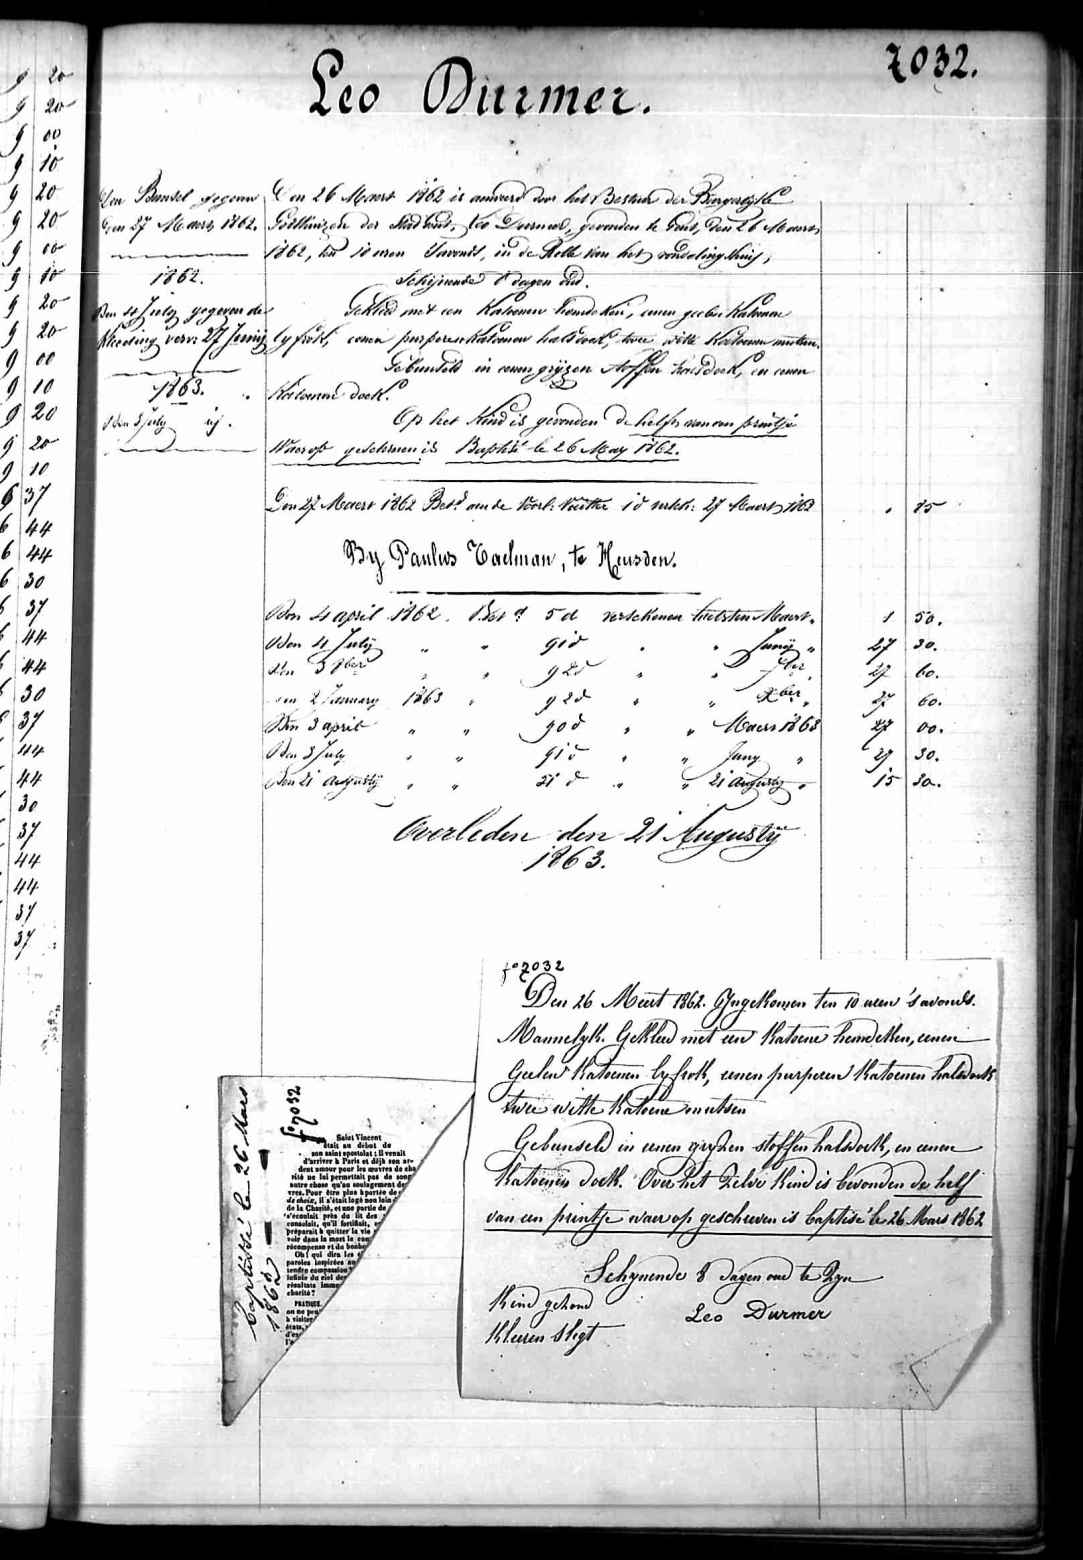 7032.
Leo Durmer.
Den Bunsel gegeven
Den 27 Maert 1862.
1862.
Den 4 July gegeven de
kleeding verv: 27 Junij
1863.
Den 3 July ij.
Den 26 Maert 1862 is aenveerd door het Bestuer der Burgerlyke
Godshuizen der Stad Gent, Leo Durmer, gevonden te Gent, den 26 Maert
1862, ten 10 uren 's avonds, in de Rolle van het vondelinghuis,
Schijnende 8 dagen oud.
Gekleed met een Katoenen hemdeken, eenen geelen Katoenen
lyfrok, eenen purperen Katoenen halsdoek, twee witte Katoenen mutsen.
Gebunseld in eenen gryzen stoffen halsdoek, en eenen
Katoenen doek.
Op het Kind is gevonden de helft van een printje
Waerop geschreven is Baptisé le 26 May 1862.
Den 27 Maert 1862 Bet.d aen de 1 d versch: 27 Maert 1862 " 85
By Paulus Taelman, te Heusden.
Den 4 april 1862. Bet.d 5 d verschenen laetsten Maert " 1 50.
Den 4 July " " 91 d " " Junij " 27 30.
Den 3 8ber " " 92 d " " 7ber " 27 60.
Den 2 January 1863 " 92 d " " Xber " 27 60.
Den 3 april " " 90 d " " Maert 1863 27 00.
Den 3 July " " 91 d " " Juny " 27 30.
Den 21 augusty " " 51 d " " 21 augusty " 15 30.
Overleden den 21 Augusty
1863.
fo 7032
Den 26 Meert 1862. Ingekomen ten 10 uren 's avonds.
Mannelyk. Gekleed met een Katoene hemdeken, eenen
Geelen Katoenen lyfrok, eenen purperen Katoenen halsdoek
twee witte Katoene mutsen
Gebunseld in eenen gryzen stoffen halsdoek, en eenen
Katoenen doek. Over het Zelve Kind is bevonden de helf
van een printje waer op geschreven is baptisé le 26 Mars 1862
Schynende 8 dagen oud te Zyn
Kind gezond
Leo Durmer
Kleeren slegt
baptisé le 26 Mars
1862
fo 7032
Saint Vincent
était au début de
son saint apostolat ; il venait
d'arriver à Paris et déjà son ar-
dent amour pour les œuvres de cha
rité ne lui permettait pas de song
autre chose qu'au soulagement de
vres. Pour être plus à portée de
de choix, il s'était logé non loin d
de la Charité, et une partie de
s'écoulait près du lit des
consolait, qu'il fortifiait, e
préparait à quitter la vie
voir dans la mort le com
récompense et du bonhe
Oh ! qui dira les e
paroles inspirées au
tendre compassion
infinie du ciel des
résultats imme
charité ?
PRATIQUE.
on ne peut
à visiter
états,
d'ex
l'e
9 20
9 20
9 00
9 10
9 20
9 20
9 00
9 10
9 20
9 20
9 00
9 10
9 20
9 20
9 10
6 37
6 44
6 44
6 30
6 37
6 44
6 44
6 30
37
44
44
30
37
44
44
37
37